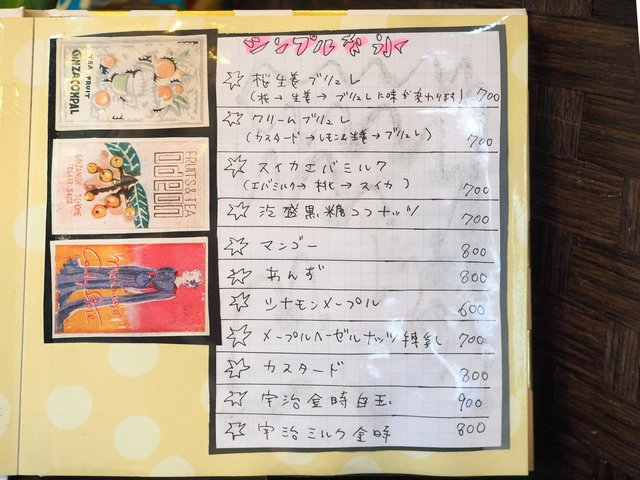 シンプルな氷
桜生姜ブリュレ
(桜→生姜→ブリュレに味が変わります) 700
クリームブリュレ
(カスタード→レモン&生姜→ブリュレ) 700
スイカエバミルク
(エバミルク→ →スイカ) 700
泡盛黒糖ココナッツ 700
マンゴー 800
あんず 800
シナモンメープル 600
メープルヘーゼルナッツ練乳 700
カスタード 800
宇治金時白玉 900
宇治ミルク金時 800
TEA FRUIT
GINZA CONPAL
FRUITS & TEA
Odeon